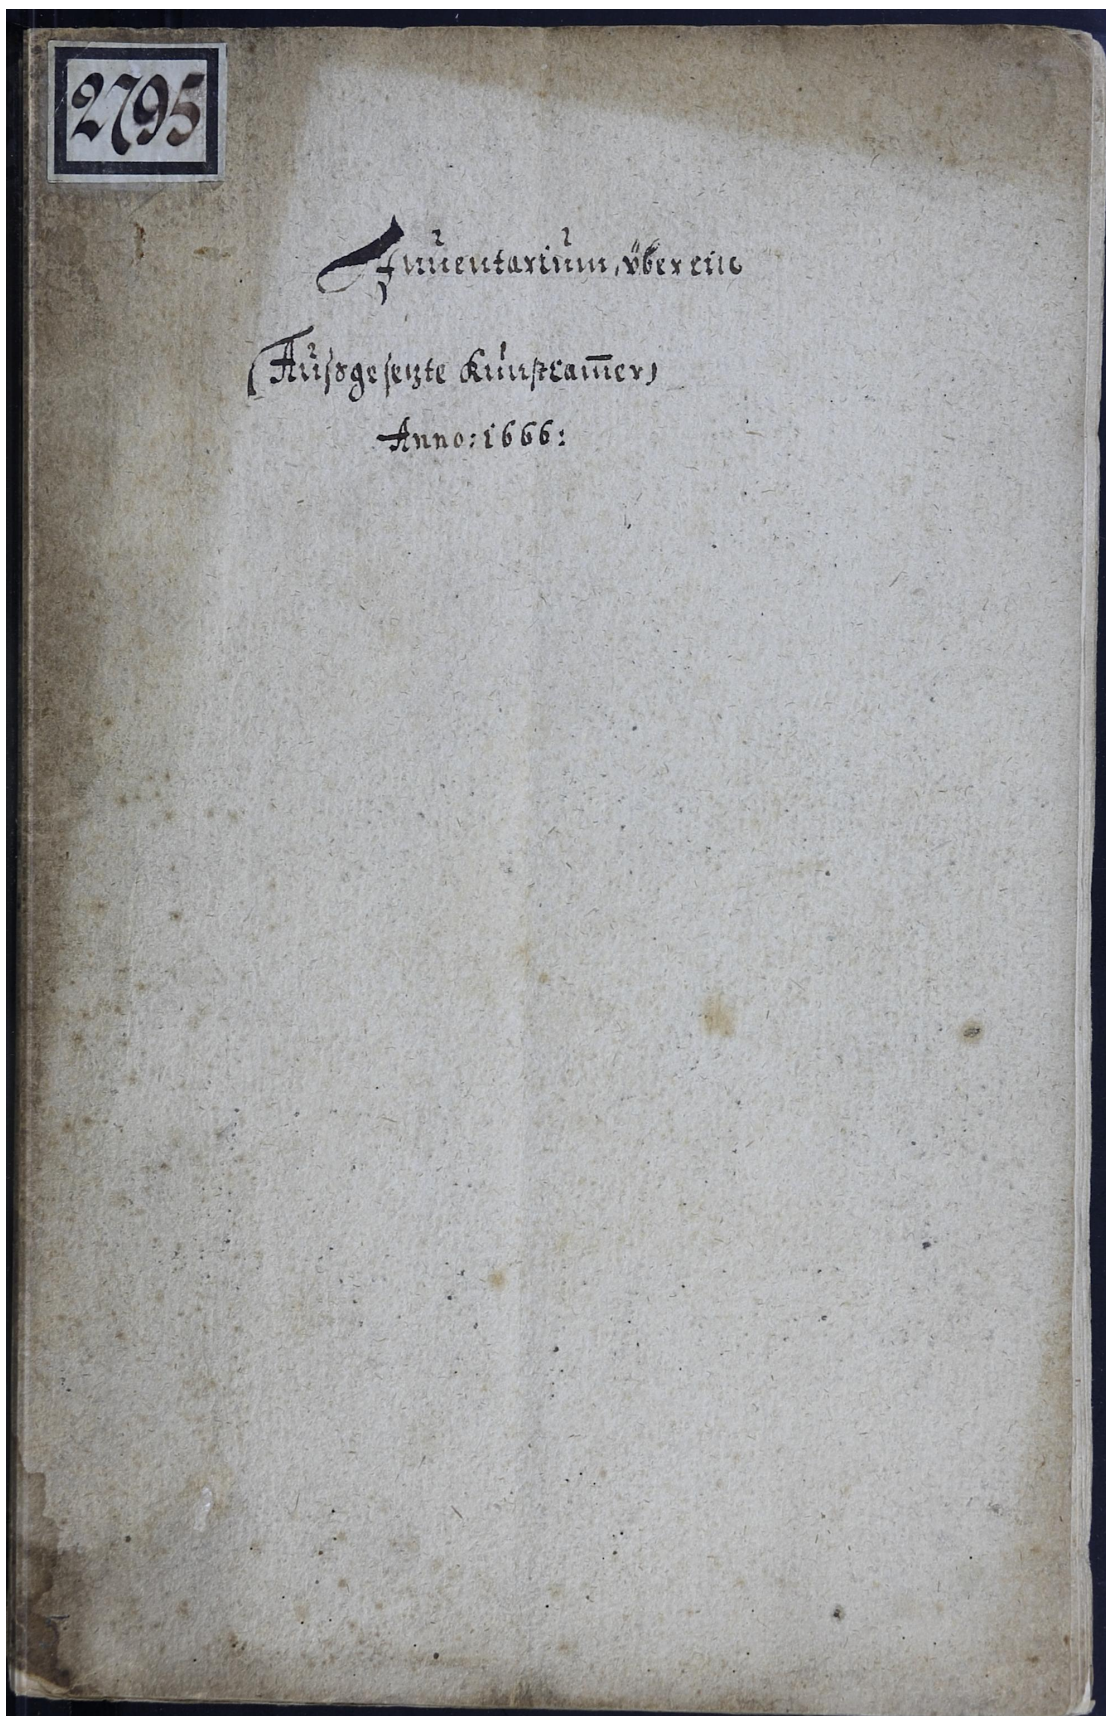 2795
Inuentarium, über eine
(Außgesetzte Kunstcam̅er)
Anno: 1666: